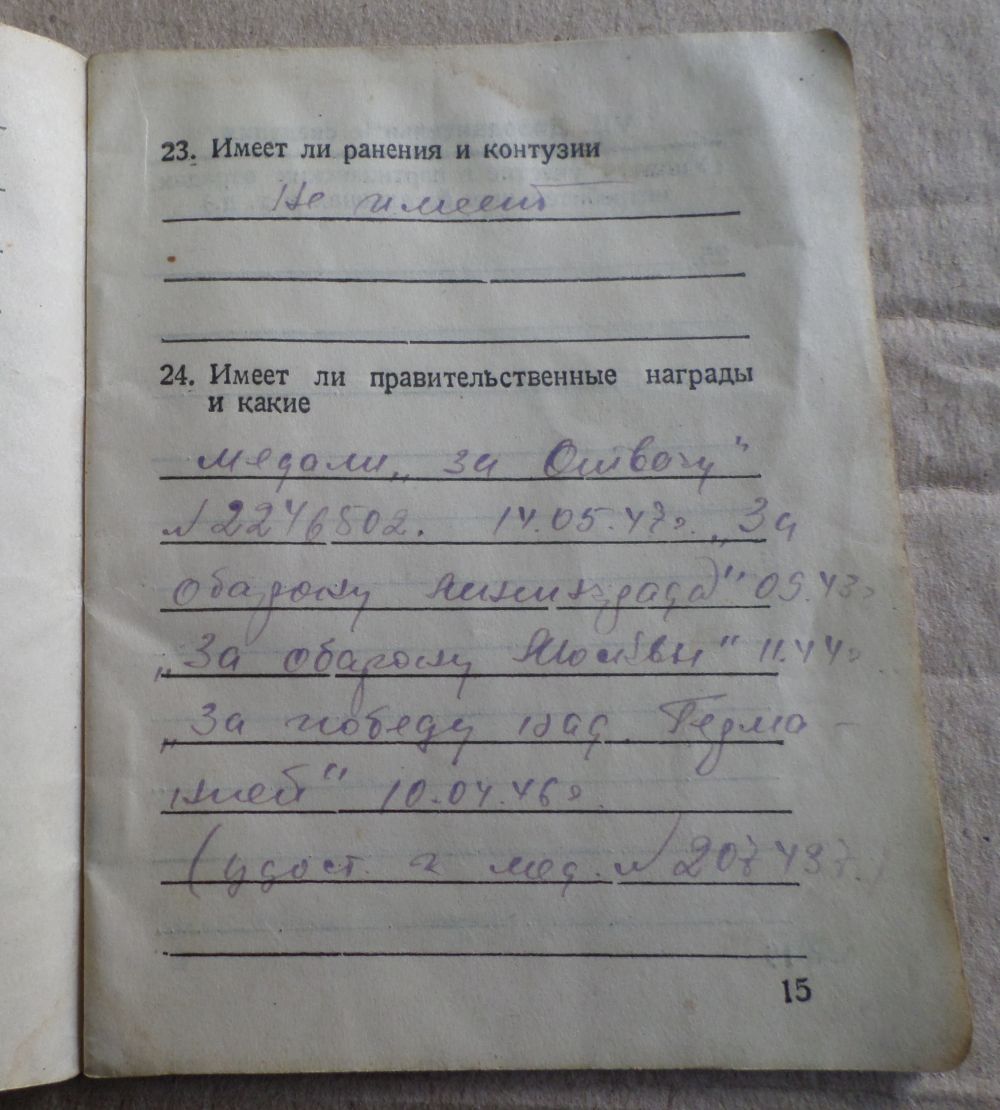 23. Имеет ли ранения и контузии
Не имеет
24. Имеет ли правительственные награды
и какие
медали „за Отвагу"
№2246502. 14.05.47г. „За
оборону Ленинграда" 05.43г
„За оборону Москвы" 11.44г
„За победу над Герма-
нией" 10.04.46г.
(удост. к мед. №207497.)
15